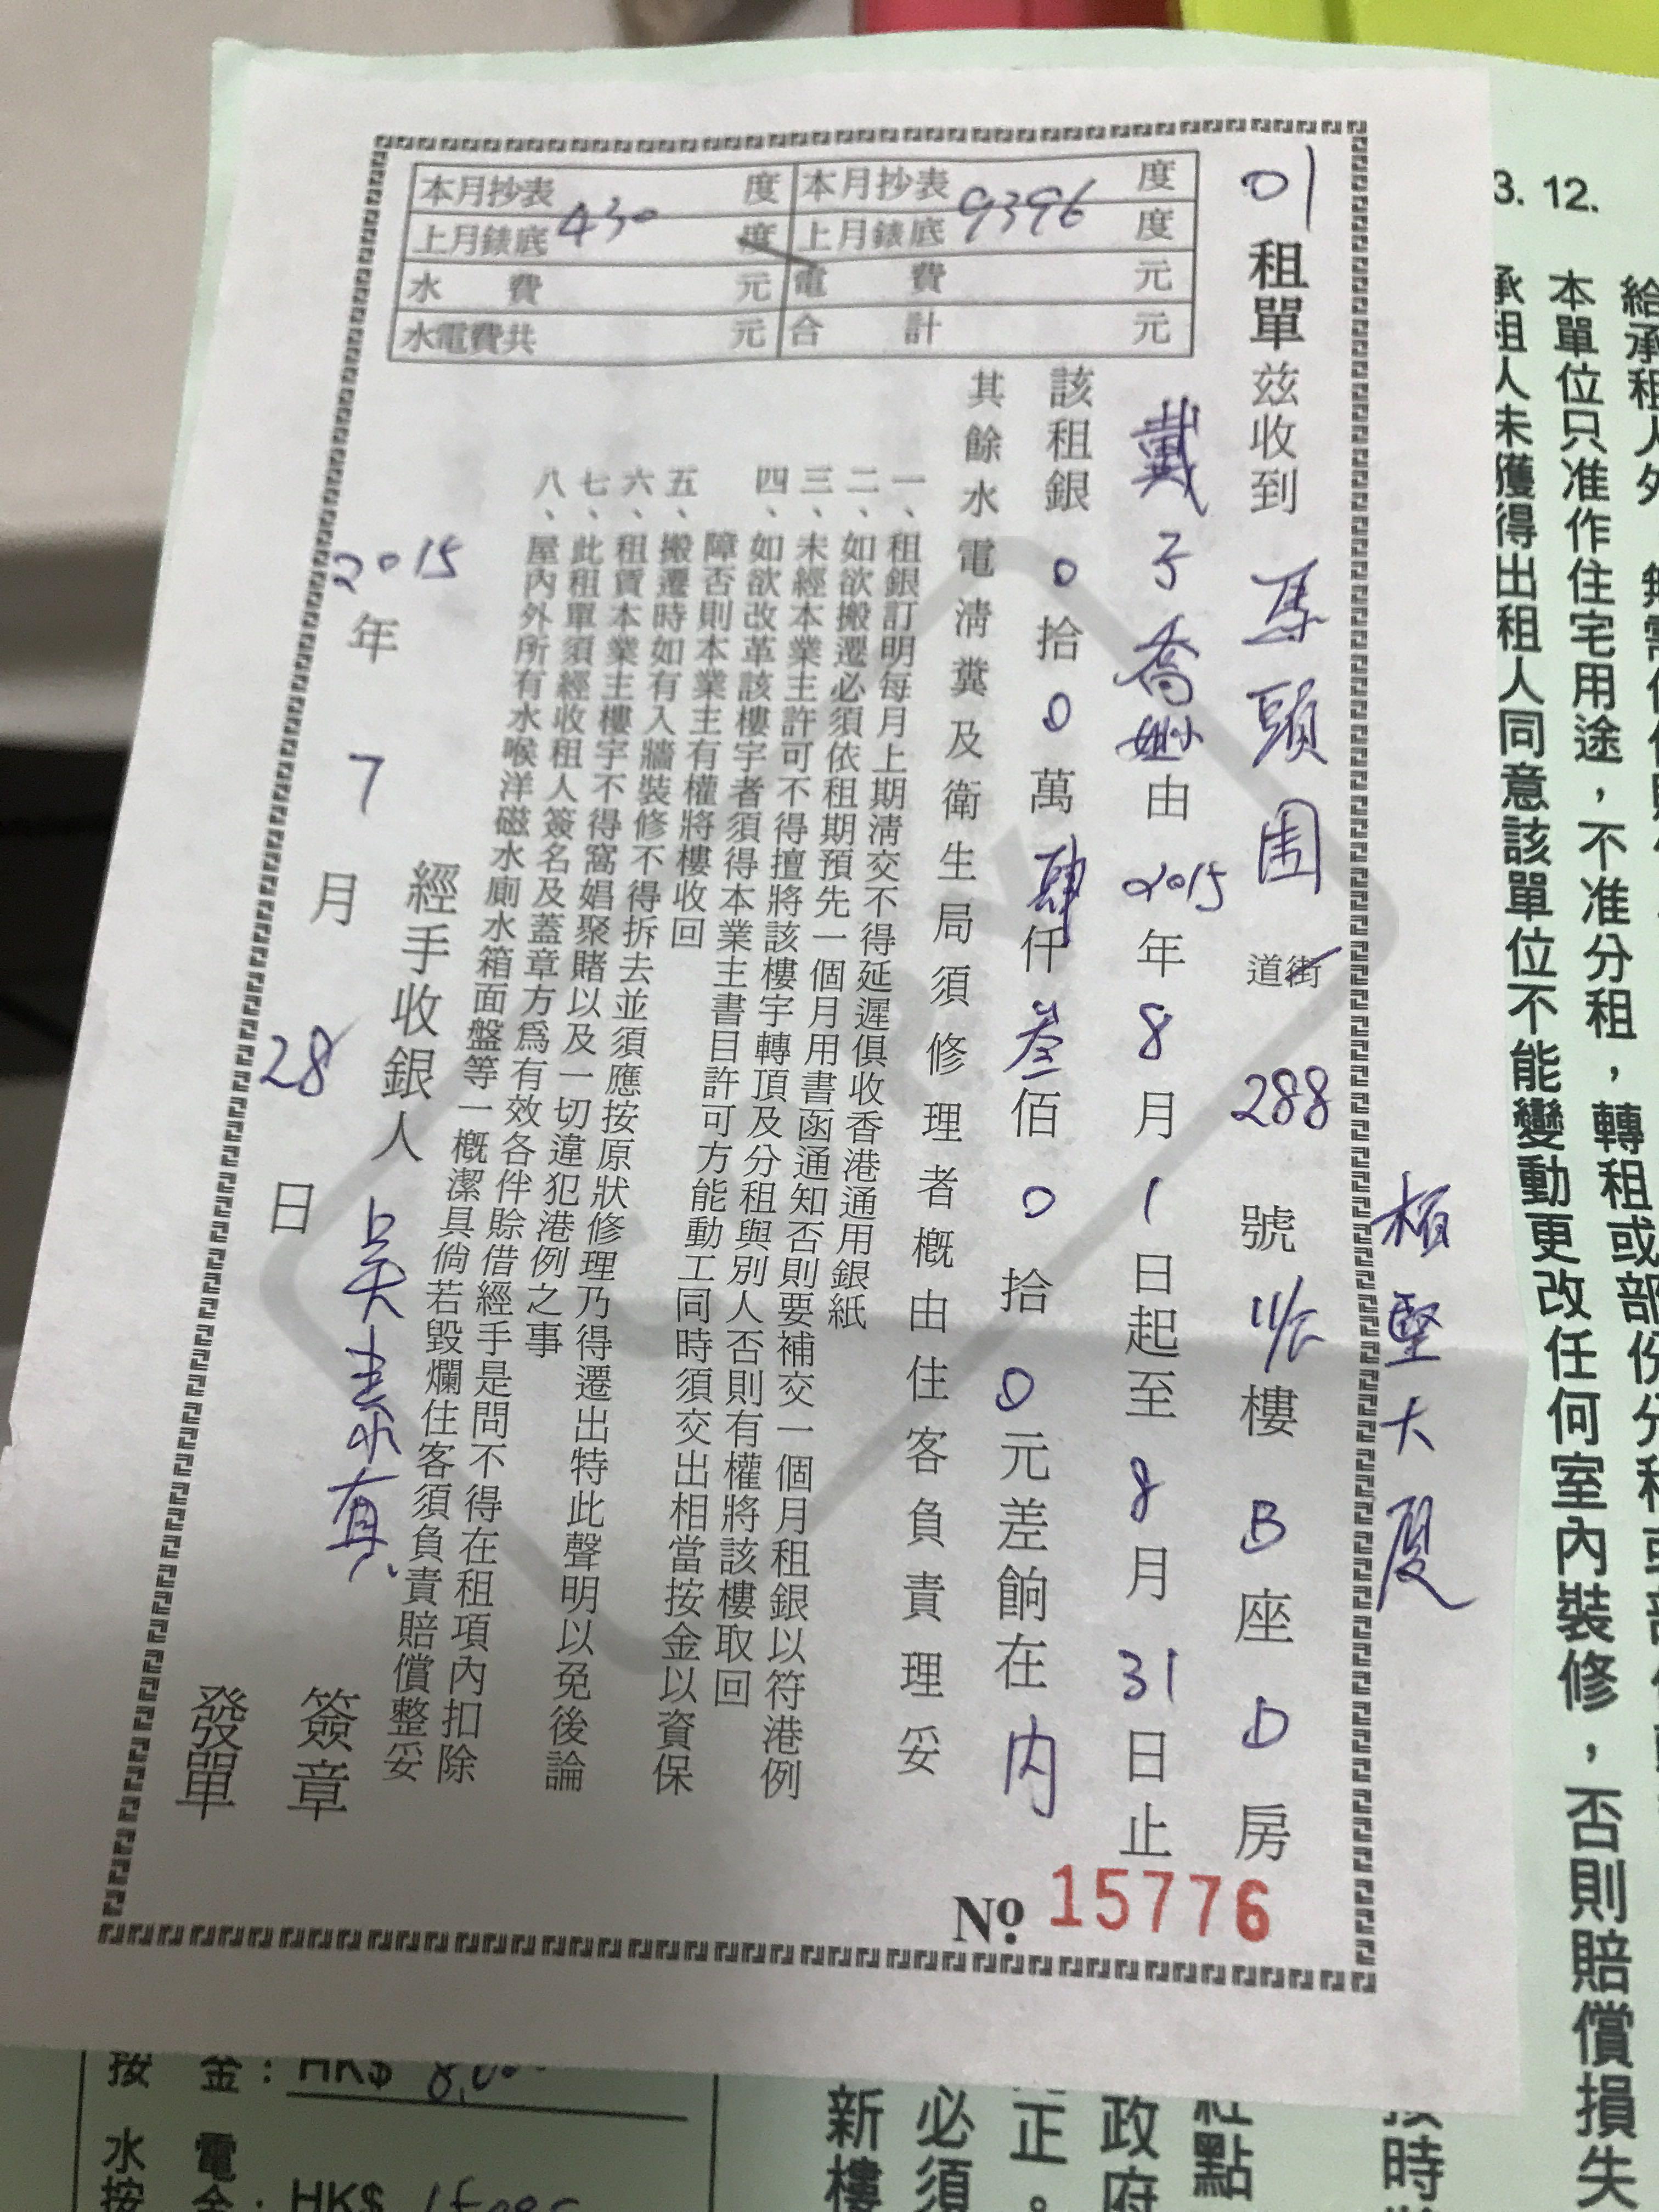 柏堅大廈
01租單茲收到馬頭围道街288號11/F樓B座D房
戴子喬由2015年8月1日起至8月31日止
該租銀0拾0萬肆仟叁佰0拾0元差餉在內
其餘水電清糞及衛生局須修理者概由住客負責理妥
一、租銀訂明每月上期清交不得延遲俱收香港通用銀紙
二、如欲搬遷必須依租期預先一個月用書函通知否則要補交一個月租銀以符港例
三、未經本業主許可不得擅將該樓宇轉頂及分租與別人否則有權將該樓取回
四、如欲改革該樓宇者須得本業主書目許可方能動工同時須交出相當按金以資保
障否則本業主有權將樓收回
五、搬遷時如有入牆裝修不得拆去並須應按原狀修理乃得遷出特此聲明以免後論
六、租賃本業主樓宇不得窩娼聚賭以及一切違犯港例之事
七、此租單須經收租人簽名及蓋章方為有效各伴賒借經手是問不得在租項內扣除
八、屋內外所有水喉洋磁水廁水箱面盤等一概潔具倘若毀爛住客須負責賠償整妥
經手收銀人吳素真簽章
2015年7月28日發單
本月抄表 度 本月抄表 度
上月錶底 430 度 上月錶底 9396 度
水費 元 電費 元
水電費共 元 合計 元
№ 15776
3. 12.
給承租人外
本單位只准作住宅用途，不准分租，轉租或部份分租
承租人未獲得出租人同意該單位不能變動更改任何室內裝修，否則賠償損失
按金：HK$
水電
按金：HK$
新樓
必須
正。
政府
點
按時